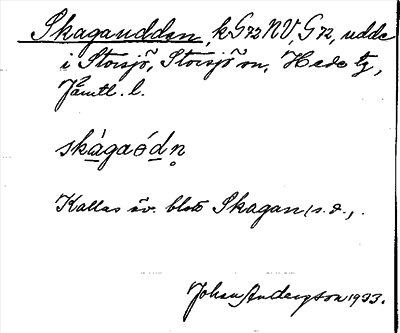 Skaganudden, k G72 NV, G72, udde
i Storsjö, Storsjö sn, Hede tg,
Jämtl. l.
skàgaódn̥
Kallas äv. blott Skagan, s. d.,.
Johan Anderson 1933.